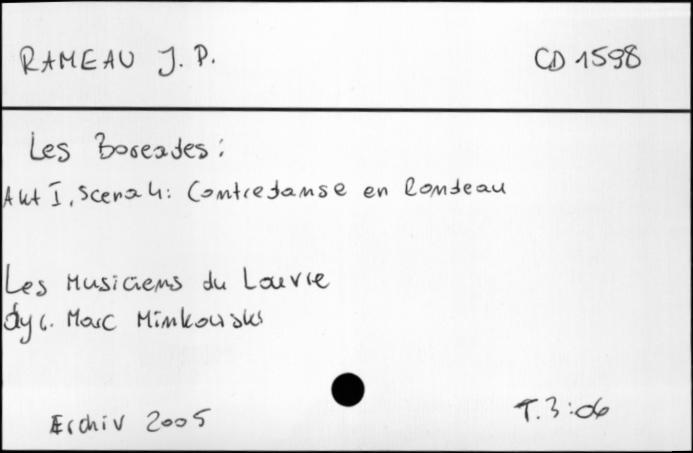 RAMEAU J. P. CD 1598
Les Boreades:
Akt I, Scena 4: Contredanse en Rondeau
Les Musiciens du Louvre
dyr. Marc Minkowski
Archiv 2005 T. 3:06